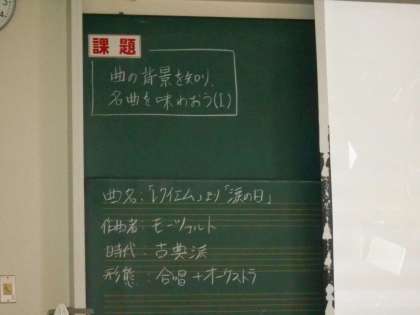 課題
曲の背景を知り、
名曲を味わおう(1)
曲名:「レクイエム」より「涙の日」
作曲者:モーツァルト
時代:古典派
形態:合唱+オーケストラ